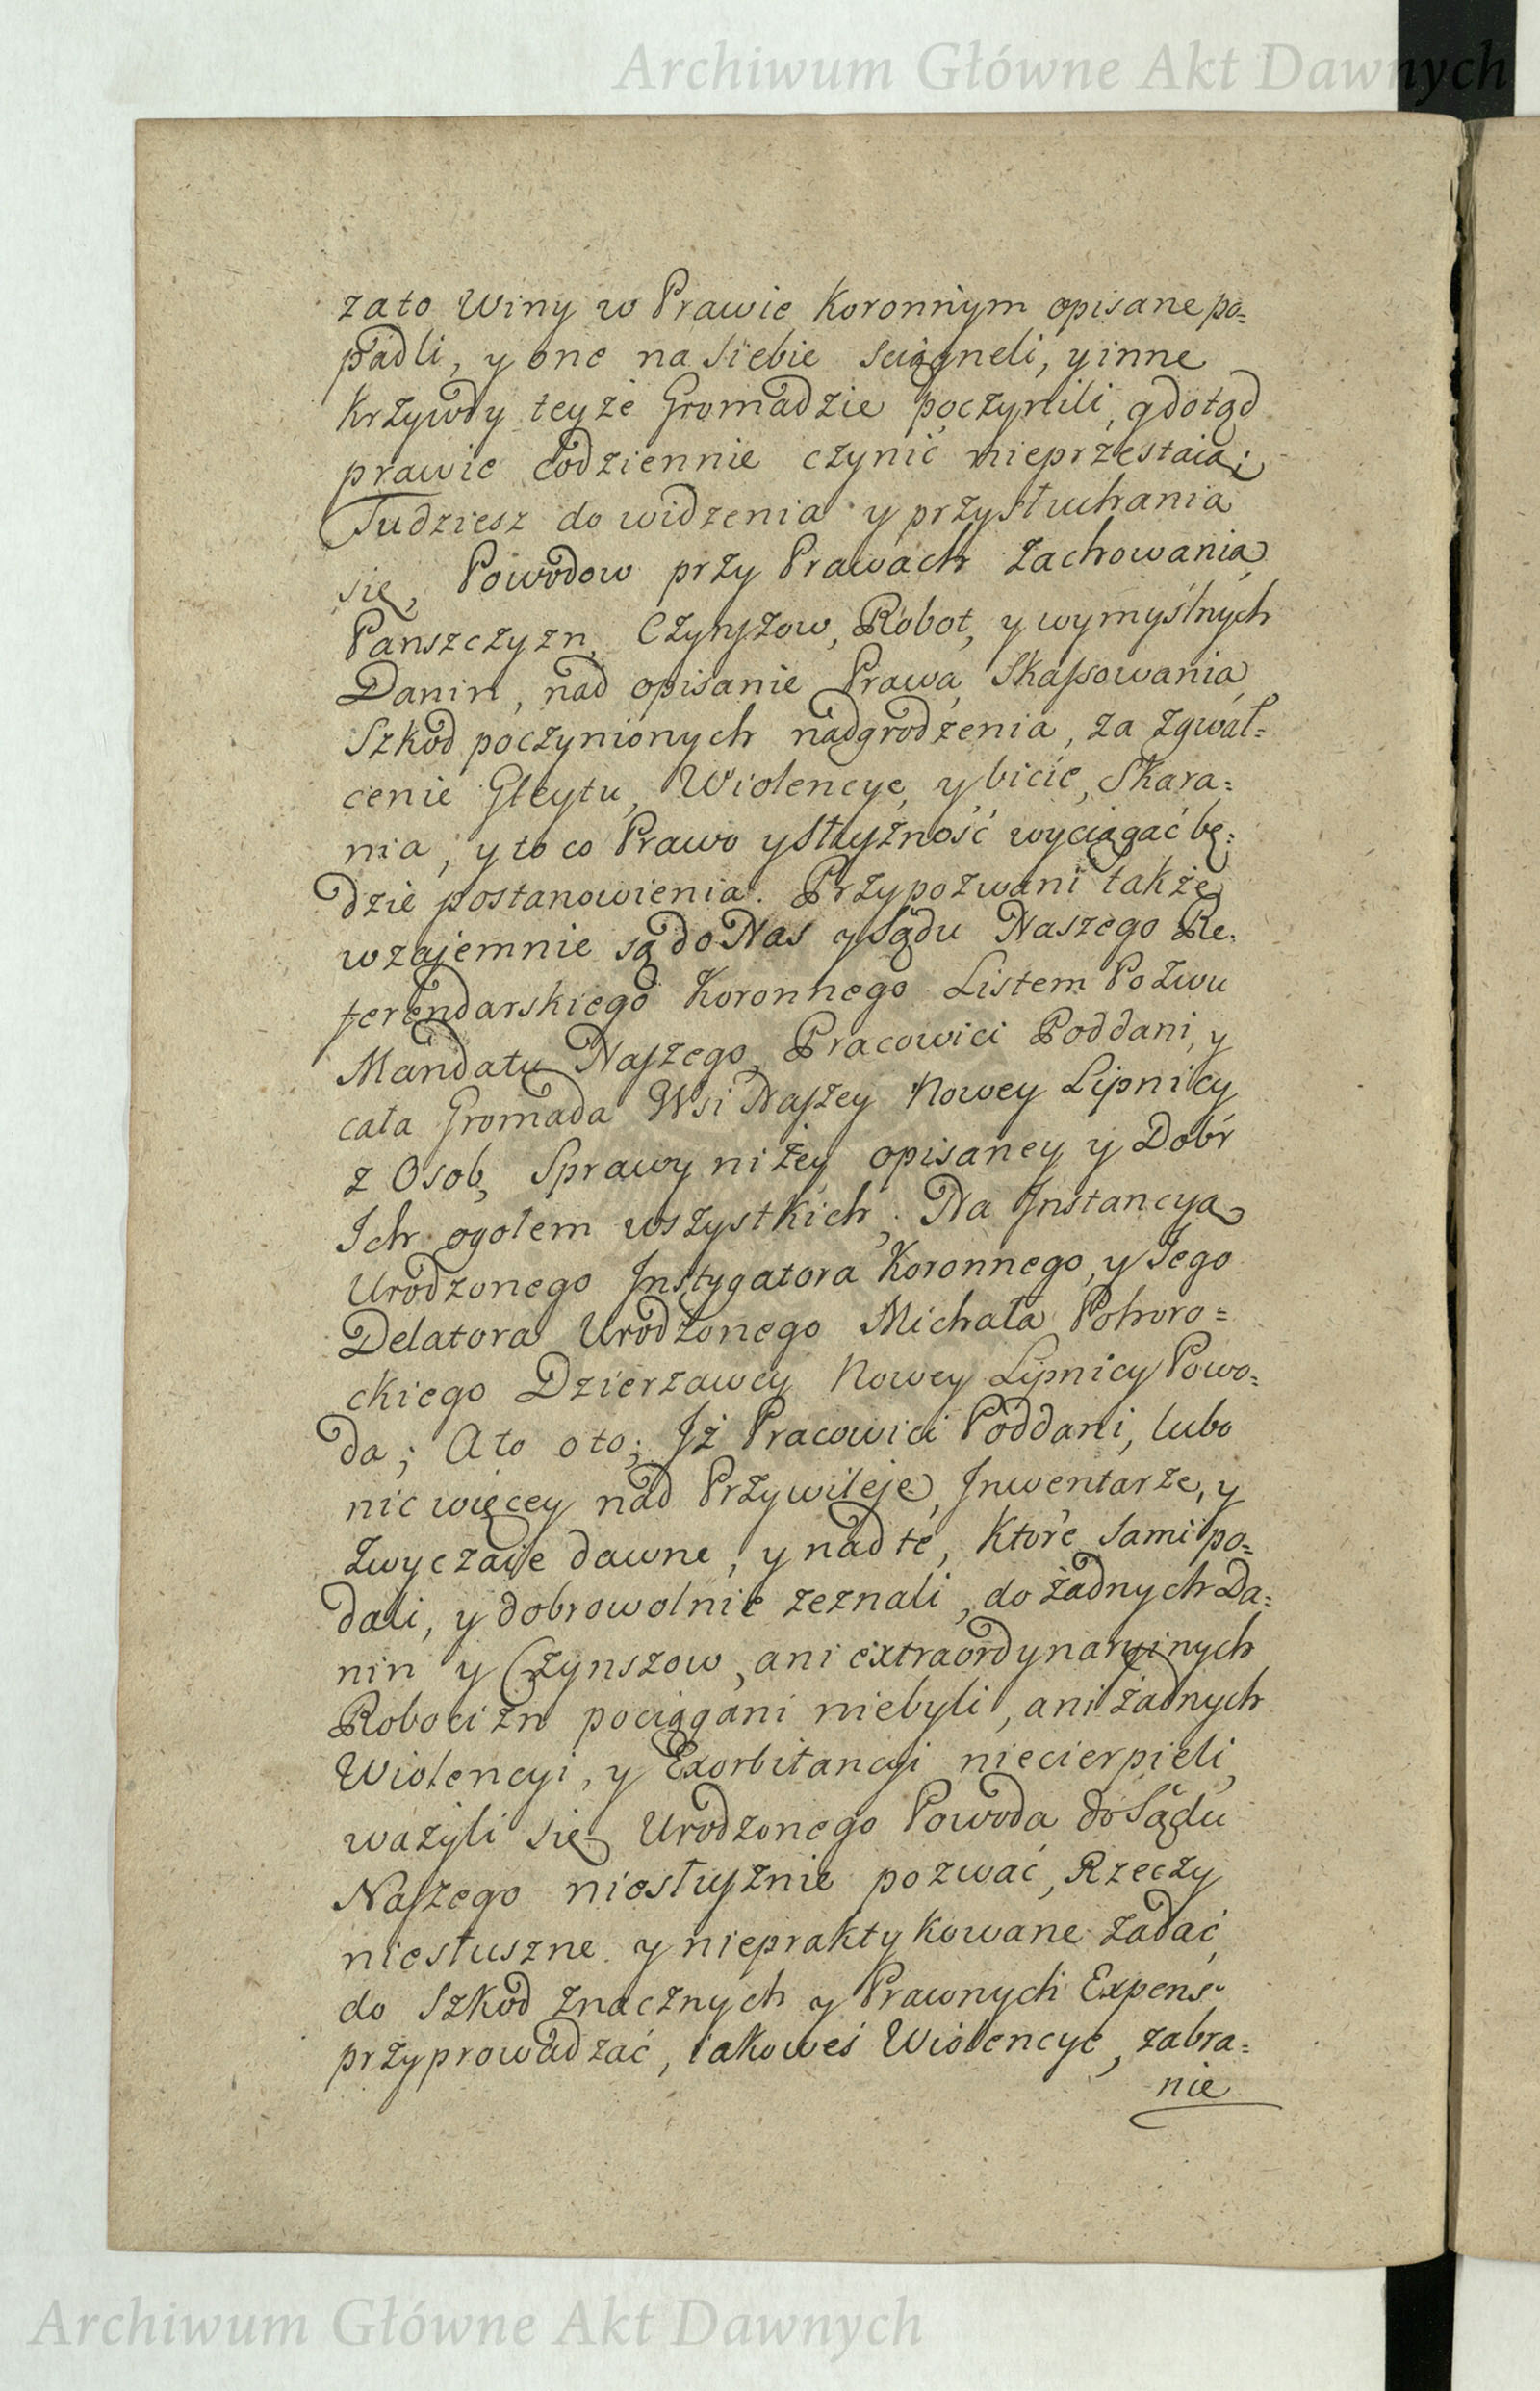 Archiwum Główne Akt Dawnych
zato Winy w Prawie Koronnym opisane po=
padli, y one na siebie sciągneli, y inne
Krzywdy teyże Gromadzie poczynili, y dotąd
prawie codziennie czynić nieprzestaią;
Tudziesz do widzenia y przysłuchania
się, Powodow przy Prawach zachowania,
Panszczyzn, Czynszow, Robot, y wymyślnych
Danin, nad opisanie Prawa, Skassowania,
Szkod poczynionych nadgrodzenia, za zgwał=
cenie Gleytu, Wiolencye, y bicie, Skara=
nia, y to co Prawo y Słuszność wyciągać bę=
dzie postanowienia. Przypozwani także
wzajemnie są do Nas y Sądu Naszego Re=
ferendarskiego Koronnego Listem Pozwu
Mandatu Naszego, Pracowici Poddani, y
cała Gromada Wsi Naszey Nowey Lipnicy
z Osob, Sprawy niżey opisaney y Dobr
Ich ogołem wszystkich, Na Instancyą
Urodzonego Instygatora Koronnego, y Jego
Delatora Urodzonego Michała Pohoro=
ckiego Dzierzawcy Nowey Lipnicy Powo=
da; A to oto; Iż Pracowici Poddani, lubo
nic więcey nad Przywileje, Inwentarze, y
Zwyczaie dawne, y nad te, Ktore sami po=
dali, y dobrowolnie zeznali, do żadnych Da=
nin y Czynszow, ani extraordynaryinych
Robocizn pociągani niebyli, ani żadnych
Wiolencyi, y Exorbitancyi niecierpieli,
ważyli się Urodzonego Powoda do Sądu
Naszego niesłusznie pozwać, Rzeczy
niesłuszne y niepraktykowane żadać,
do Szkod znacznych y Prawnych Expens
przyprowadzać, iakoweś Wiolencye, zabra=
nie
Archiwum Główne Akt Dawnych